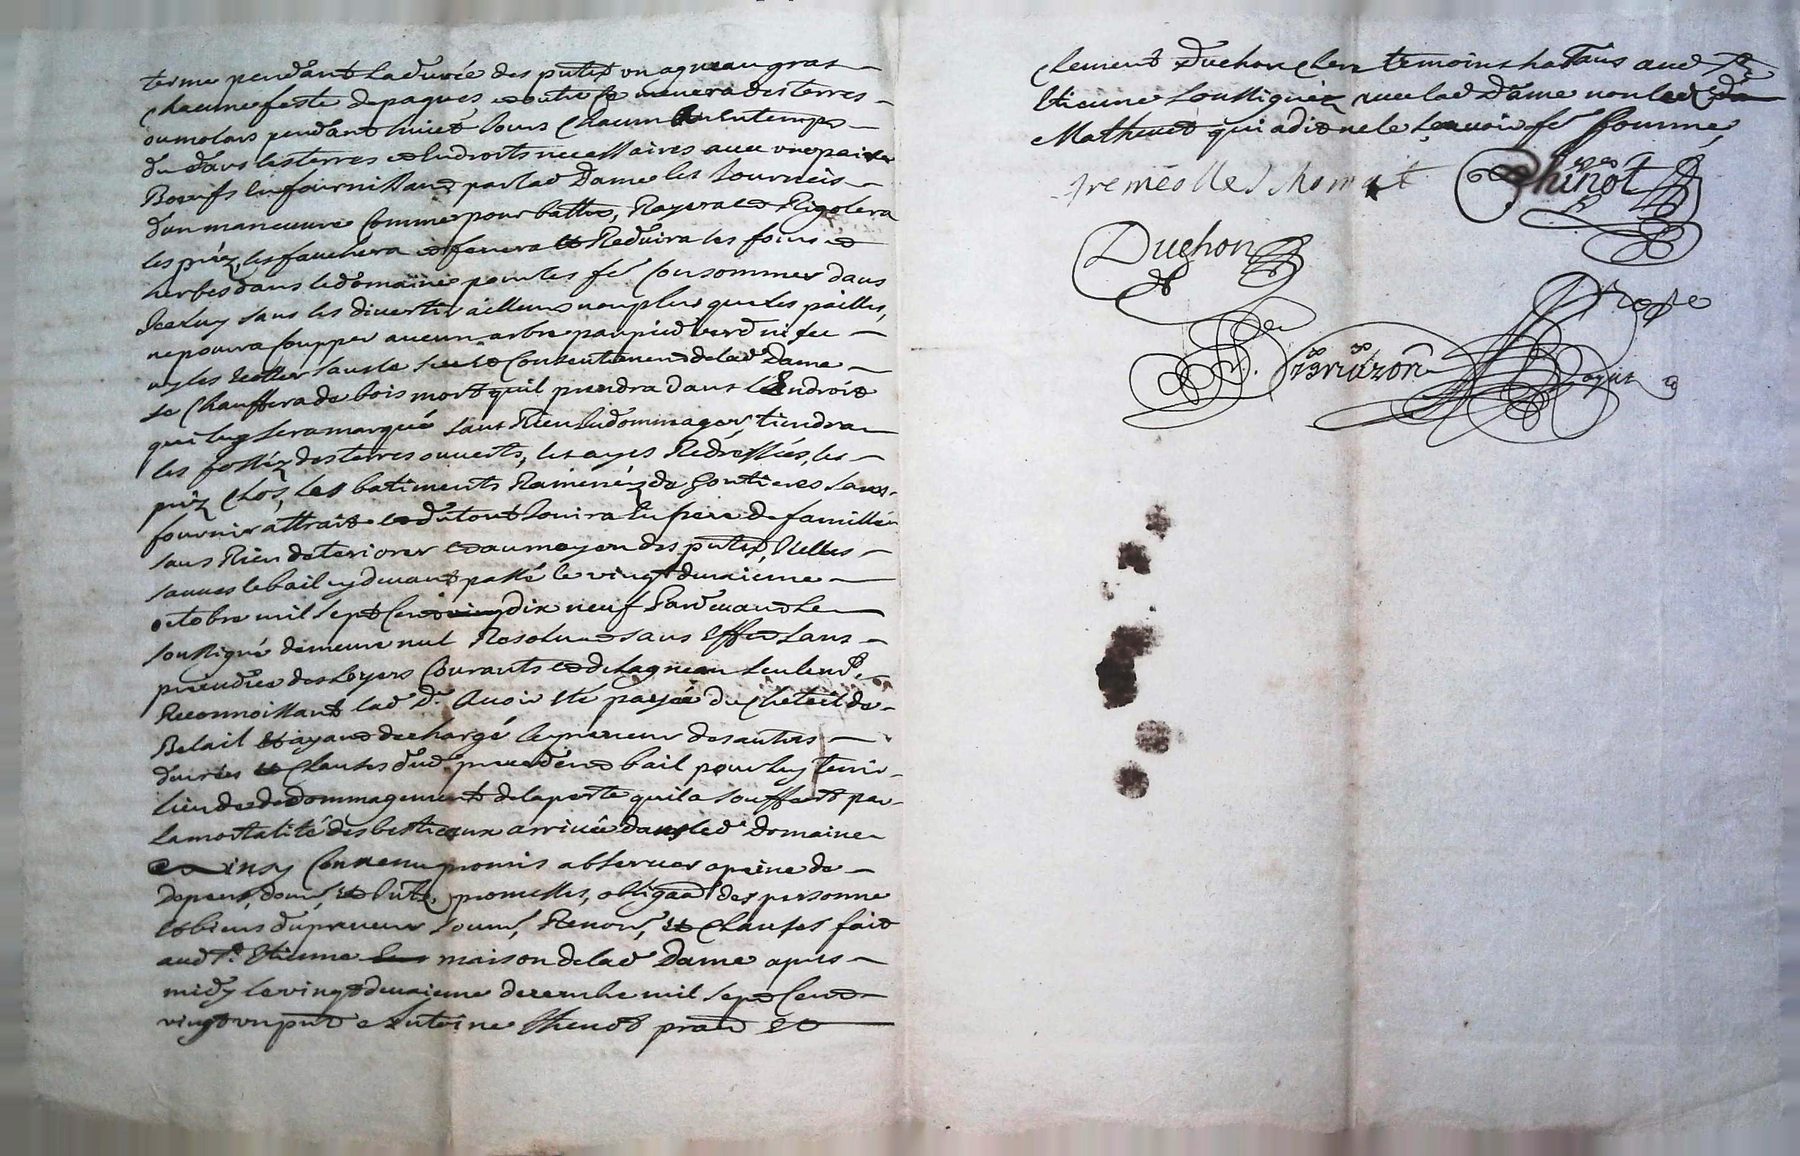 terme pendant la durée des putes un agneau gras
Chacune feste de paques, et outre ce menera des terres
ou molars pendant huict jours Chacun an en temps
du dans les terres et endroits necessaires avec une paire
Boeufs en fournissant par lad Dame les journées
d'un maneuvre Comme pour battre, Rayera et Rigolera
les préz, les fauchera et fenera et Reduira les foins et
herbes dans le domaine pour les fe Consommer dans
Iceluy sans les divertir ailleurs non plus que les pailles,
ne pourra Coupper aucun arbre par pied verd ni sec
ny les Ecotter sans le seul et Consentement de lad Dame
se Chauffera de bois mort quil prendra dans l'Endroit
qui luy sera marqué sans Rien Endommager, tiendra
les fosséz des terres ouverts, les ayes Redressées, les
préz Clos, les batiments Ramenéz de Goutieres sans
fournir attrait et du tout jouira En pere de famille
sans Rien deteriorer et au moyen des putes, Icelles
sauves le bail cy devant passé le vingt deuxième
octobre mil sept Cent dix neuf Pardevant Le
soussigné demeure nul Resolu et sans effet sans
prejudice des Loyers Courants et de lagneau seulemt,
Reconnoissant lad De. Avoir été payée du Cheteil de
Belail et ayant dechargé le preneur des autres
dairées et Clauses dud precedent bail pour luy tenir
lieu de dedommagement de la perte quil a souffert par
la mortalité des bestiaux arrivée dans led Domaine
ainsy Convenu promis observer a peine de
depens, dom, et Puts, promesses, obligaon des personne
et biens du preneur soum, Renon, et Clauses fait
aud St. Etienne maison de lad Dame apres
midy le vingt deuxieme decembre mil sept Cent
vingt un put Antoine Thenot prat Et
Clement Duchon Clerc temoins ha Tans aud St
Etienne soussignéz avec lad Dame non led
Mathevet qui a dit ne le scavoir fe sommé,
Thinot
Duchon